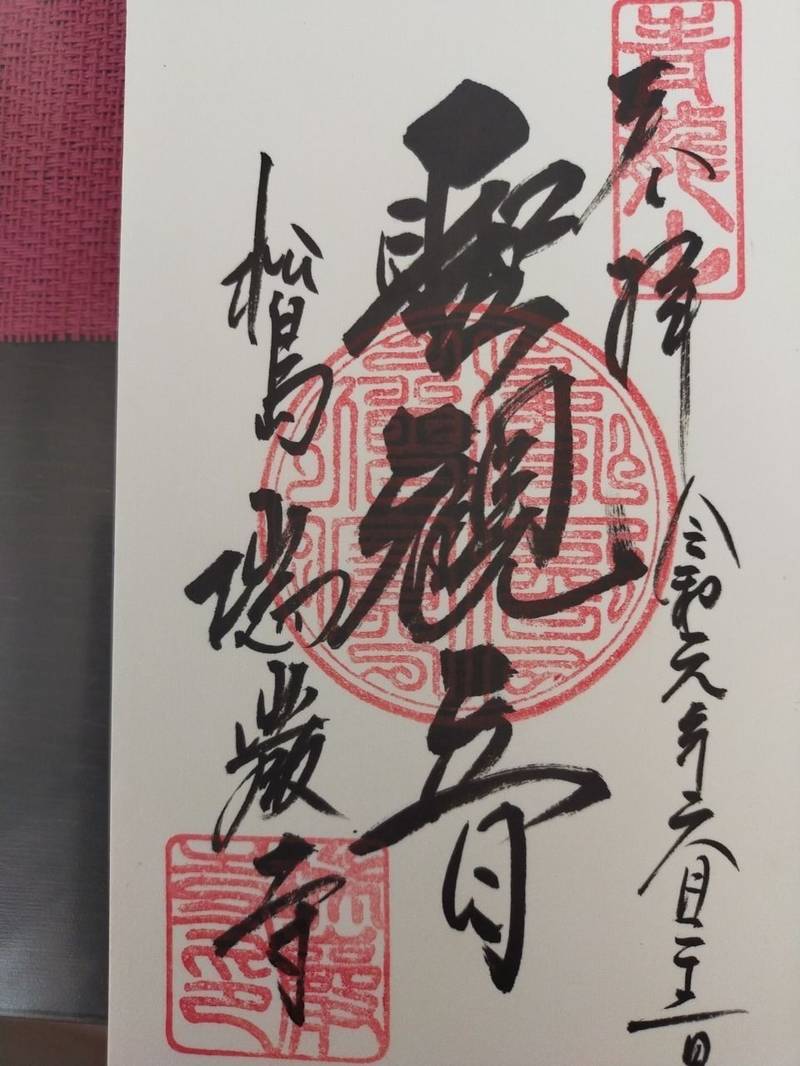 青龍山
奉拝
令和元年六月二十日
聖觀音
松島 瑞巌寺
瑞巌寺印